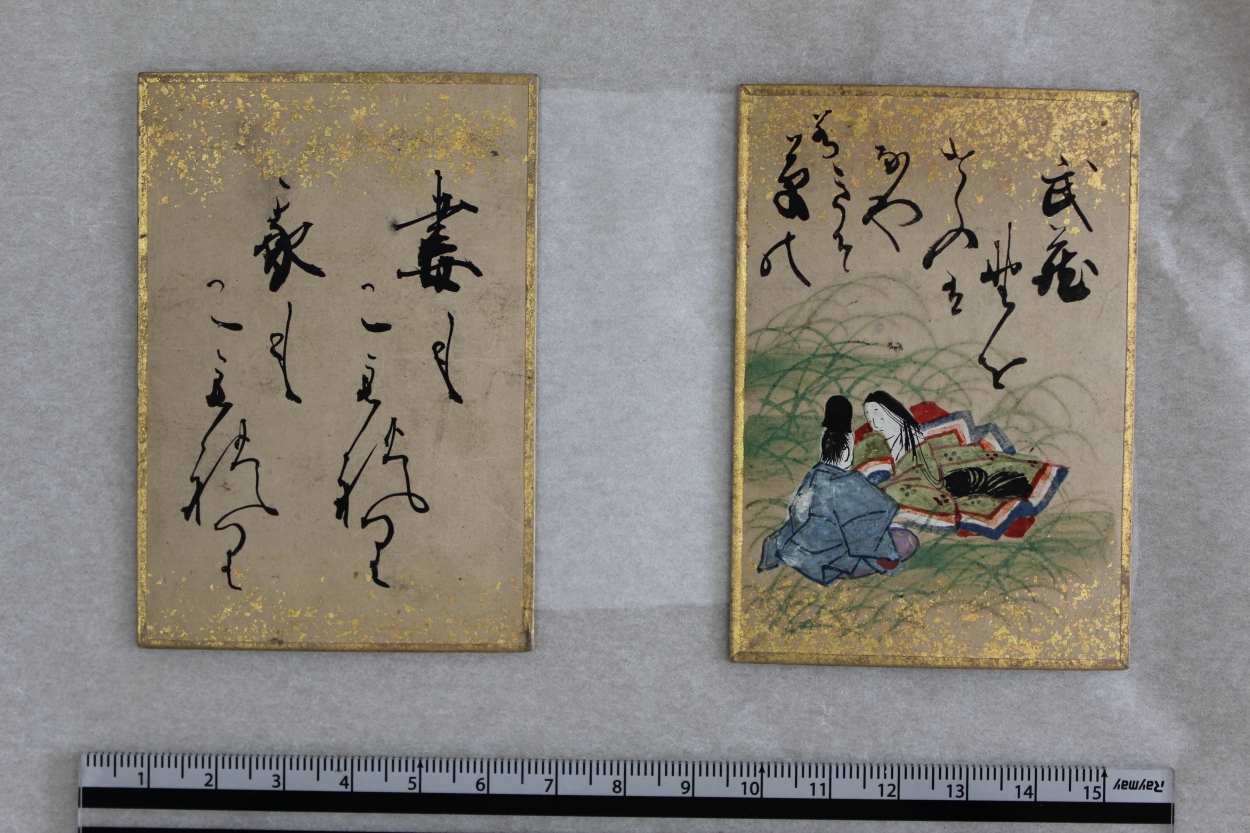 武蔵
野は
けふは
なや
きそ
若
草の
妻も
こもれり
我も
こもれり
1 2 3 4 5 6 7 8 9 10 11 12 13 14 15 Raymay